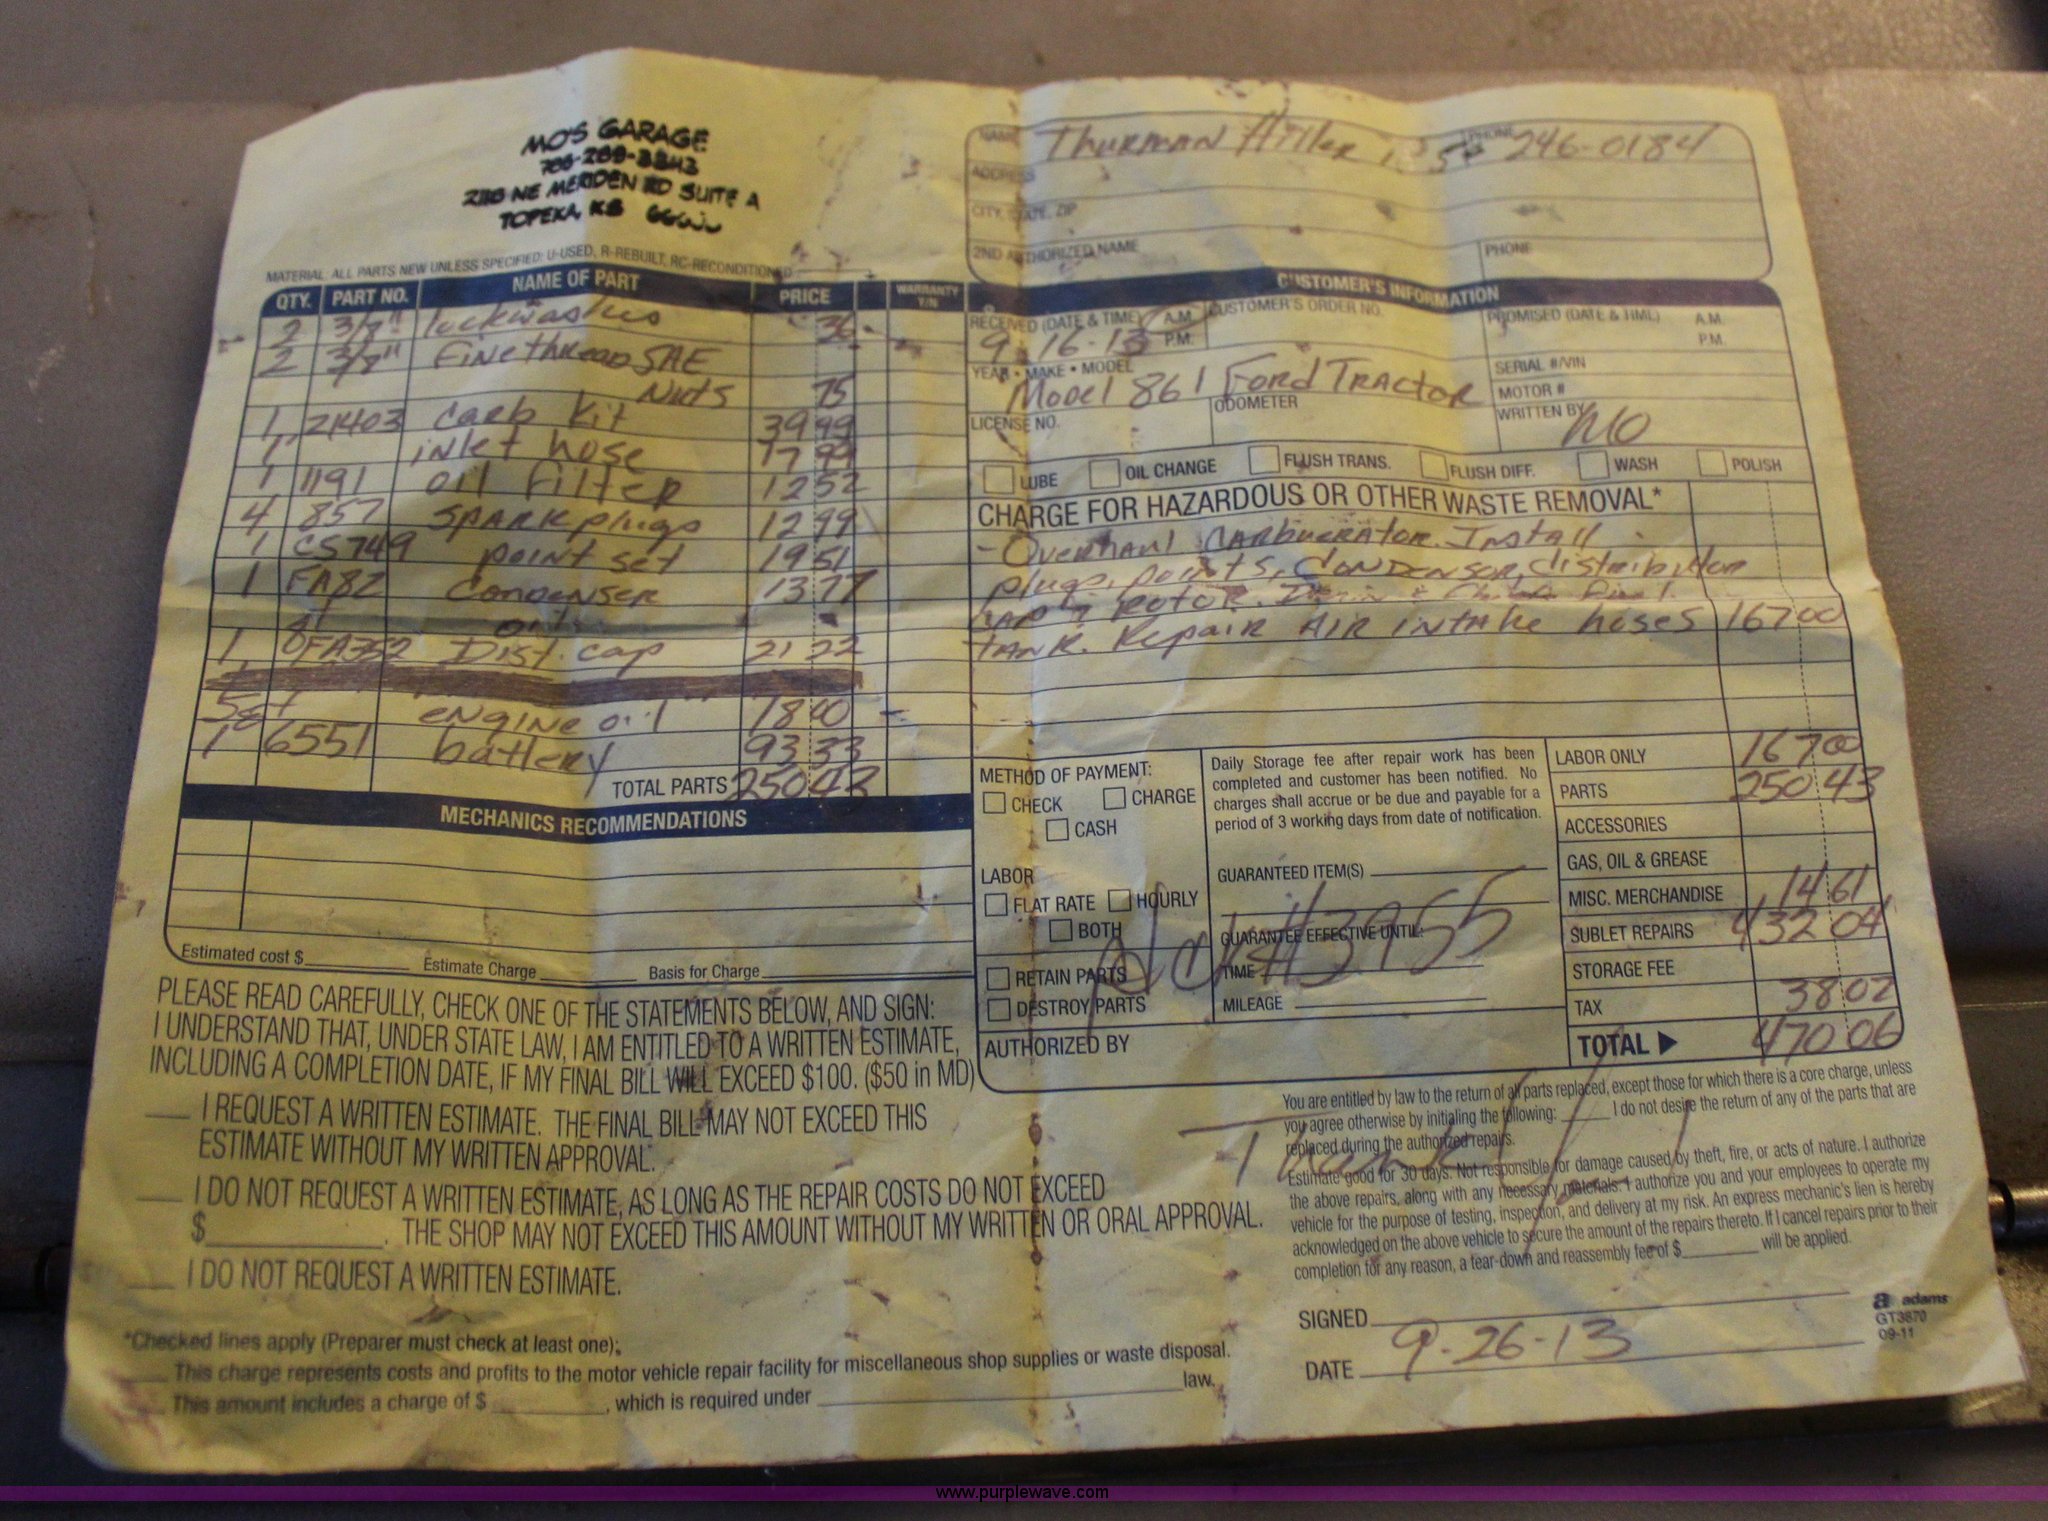 MO'S GARAGE
NE MERIDEN RD SUITE A
TOPEKA, KS
NAME Thurman Hiller PHONE 246-0184
ADDRESS
CITY, STATE, ZIP
2ND AUTHORIZED NAME PHONE
MATERIAL: ALL PARTS NEW UNLESS SPECIFIED: U-USED, R-REBUILT, RC-RECONDITIONED
QTY. PART NO. NAME OF PART PRICE WARRANTY Y/N
2 3/8" lockwashers 36
2 3/8" Fine thread SAE
Nuts 75
1 21403 carb kit 39 99
1 inlet hose 17 99
1 1191 oil filter 12 52
4 857 spark plugs 12 99
1 CS749 point set 19 51
1 FA82 Condenser 13 77
oil
1 Dist. cap 21 22
5qt engine oil 18 40
1 6551 battery 93 33
TOTAL PARTS 250 43
MECHANICS RECOMMENDATIONS
Estimated cost $ Estimate Charge Basis for Charge
CUSTOMER'S INFORMATION
RECEIVED (DATE & TIME) A.M. P.M. 9-16-13
CUSTOMER'S ORDER NO.
PROMISED (DATE & TIME) A.M. P.M.
YEAR • MAKE • MODEL
Model 861 Ford Tractor
SERIAL #/VIN
MOTOR #
LICENSE NO. ODOMETER WRITTEN BY Mo
LUBE OIL CHANGE FLUSH TRANS. FLUSH DIFF. WASH POLISH
CHARGE FOR HAZARDOUS OR OTHER WASTE REMOVAL*
- Overhaul Carbuerator. Install
plugs, points, Condenser, distributor
cap & Rotor. Drain & Clean Fuel
tank. Repair Air intake hoses 167 00
METHOD OF PAYMENT:
CHECK CHARGE
CASH
LABOR
FLAT RATE HOURLY
BOTH
RETAIN PARTS
DESTROY PARTS
AUTHORIZED BY
Daily Storage fee after repair work has been
completed and customer has been notified. No
charges shall accrue or be due and payable for a
period of 3 working days from date of notification.
GUARANTEED ITEM(S)
GUARANTEE EFFECTIVE UNTIL:
TIME
MILEAGE
ck#3955
LABOR ONLY 167 00
PARTS 250 43
ACCESSORIES
GAS, OIL & GREASE
MISC. MERCHANDISE 14 61
SUBLET REPAIRS 432 04
STORAGE FEE
TAX 38 02
TOTAL ▶ 470 06
PLEASE READ CAREFULLY, CHECK ONE OF THE STATEMENTS BELOW, AND SIGN:
I UNDERSTAND THAT, UNDER STATE LAW, I AM ENTITLED TO A WRITTEN ESTIMATE,
INCLUDING A COMPLETION DATE, IF MY FINAL BILL WILL EXCEED $100. ($50 in MD)
I REQUEST A WRITTEN ESTIMATE. THE FINAL BILL MAY NOT EXCEED THIS
ESTIMATE WITHOUT MY WRITTEN APPROVAL.
I DO NOT REQUEST A WRITTEN ESTIMATE, AS LONG AS THE REPAIR COSTS DO NOT EXCEED
$ . THE SHOP MAY NOT EXCEED THIS AMOUNT WITHOUT MY WRITTEN OR ORAL APPROVAL.
I DO NOT REQUEST A WRITTEN ESTIMATE.
*Checked lines apply (Preparer must check at least one);
This charge represents costs and profits to the motor vehicle repair facility for miscellaneous shop supplies or waste disposal.
This amount includes a charge of $ , which is required under law.
You are entitled by law to the return of all parts replaced, except those for which there is a core charge, unless
you agree otherwise by initialing the following: I do not desire the return of any of the parts that are
replaced during the authorized repairs.
Estimate good for 30 days. Not responsible for damage caused by theft, fire, or acts of nature. I authorize
the above repairs, along with any necessary materials. I authorize you and your employees to operate my
vehicle for the purpose of testing, inspection, and delivery at my risk. An express mechanic's lien is hereby
acknowledged on the above vehicle to secure the amount of the repairs thereto. If I cancel repairs prior to their
completion for any reason, a tear-down and reassembly fee of $ will be applied.
Thank
SIGNED
DATE 9-26-13
adams
GT3870
09-11
www.purplewave.com